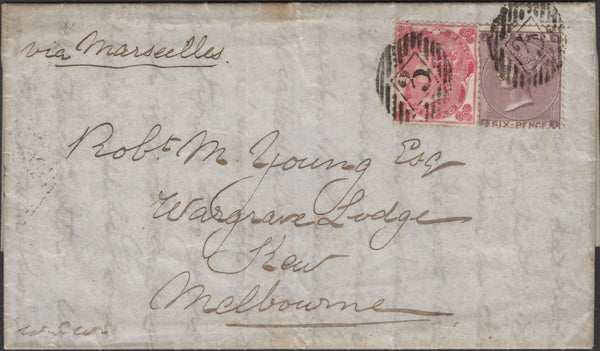 via Marseilles.
3
SIX-PENCE
Robt. M. Young Esq
Wargrave Lodge
Kew
Melbourne
W.S.W.